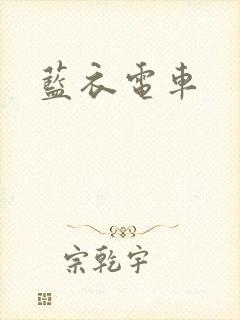 藍衣電車
宗乾宇